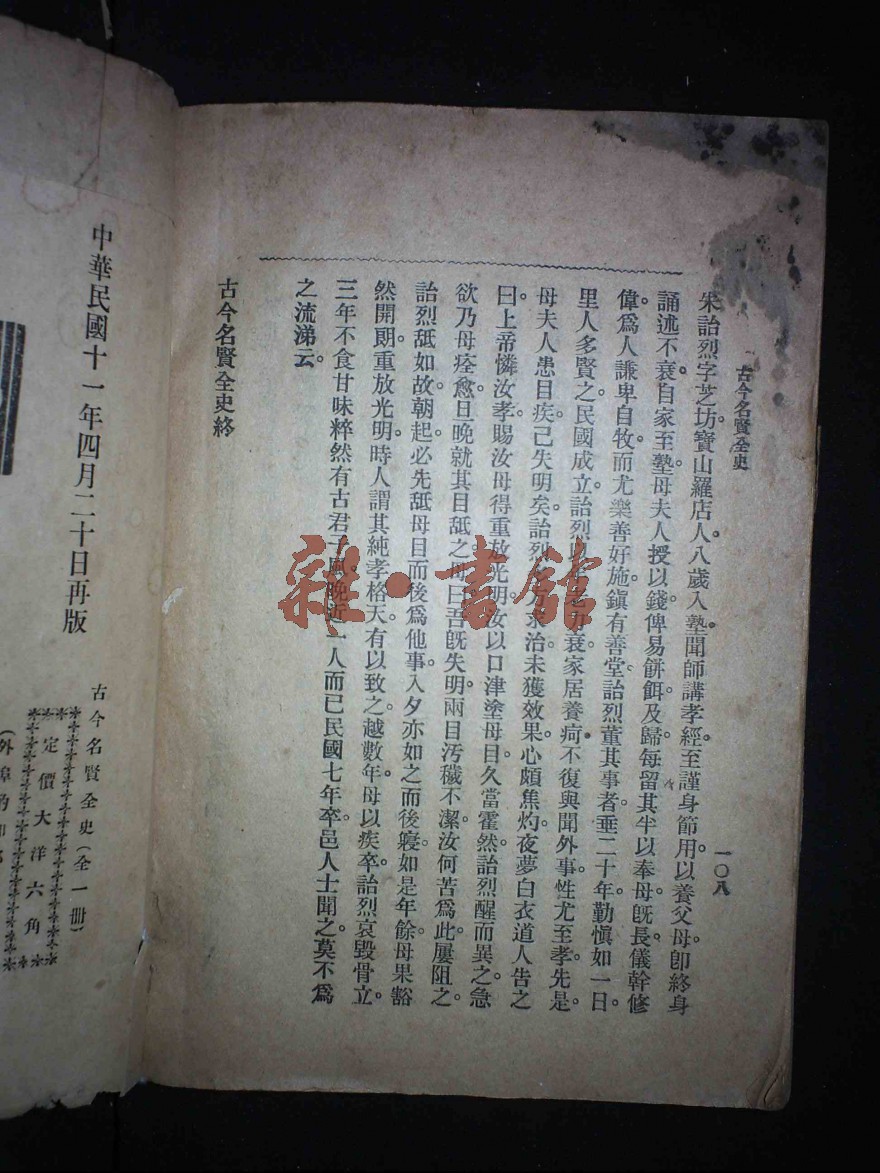 古今名賢全史
一〇八
朱詒烈字芝坊。寶山羅店人。八歲入塾。聞師講孝經。至謹身節用。以養父母。卽終身
誦述不衰。自家至塾。母夫人授以錢。俾易餅餌。及歸。每留其半以奉母。旣長。儀幹修
偉。爲人謙卑自牧。而尤樂善好施。鎭有善堂。詒烈董其事者。垂二十年。勤愼如一日。
里人多賢之。民國成立。詒烈以年老力衰。家居養疴。不復與聞外事。性尤至孝。先是
母夫人患目疾。已失明矣。詒烈多方求治。未獲效果。心頗焦灼。夜夢白衣道人告之
曰。上帝憐汝孝。賜汝母得重放光明。汝以口津塗母目。久當霍然。詒烈醒而異之。急
欲乃母痊愈。旦晚就其目舐之。母曰。吾旣失明。兩目汚穢不潔。汝何苦爲此。屢阻之。
詒烈舐如故。朝起必先舐母目。而後爲他事。入夕亦如之。而後寢。如是年餘。母果豁
然開朗。重放光明。時人謂其純孝格天。有以致之。越數年。母以疾卒。詒烈哀毀骨立。
三年不食甘味。粹然有古君子風。晚近一人而已。民國七年卒。邑人士聞之。莫不爲
之流涕云。
古今名賢全史終
中華民國十一年四月二十日再版
古今名賢全史（全一冊）
定價大洋六角
（外埠酌加
雜·書館